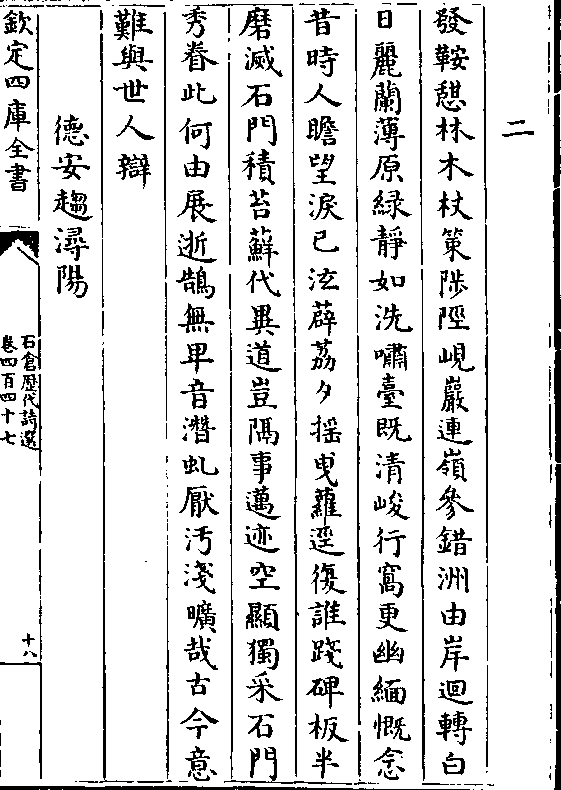 二
發鞍憇林木杖策陟陘峴巖連嶺參錯洲由岸迴轉白
日麗蘭薄原緑靜如洗嘯臺既清峻行窩更幽緬慨念
昔時人瞻望淚已泫薜荔夕揺曵蘿逕復誰踐碑板半
磨滅石門積苔蘚代異道豈隅事邁迹空顯獨采石門
秀眷此何由展逝鵠無卑音潛虬厭汚淺曠哉古今意
難與世人辯
德安趨潯陽
欽定四庫全書
石倉歷代詩選
卷四百四十七
十八